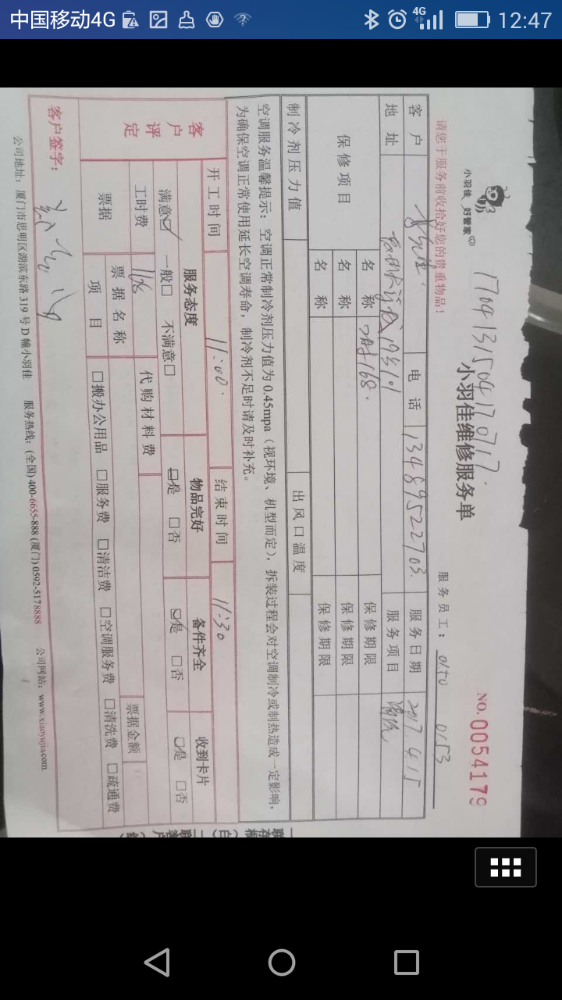 中国移动4G
4G
12:47
小羽佳 好管家
请您于服务前收拾好您的贵重物品！
170413150417017.
小羽佳维修服务单
NO. 0054179
服务员工： 0150 0153
客户
电话 13489522703
服务日期 2017.4.15
地址
服务项目
保修项目
名称
保修期限
名称
保修期限
名称
保修期限
制冷剂压力值
出风口温度
空调服务温馨提示：空调正常制冷剂压力值为 0.45mpa（视环境、机型而定），拆装过程会对空调制冷或制热造成一定影响，
为确保空调正常使用延长空调寿命，制冷剂不足时请及时补充。
开工时间 11:00.
结束时间 11:30
客户评定
服务态度
物品完好
备件齐全
收到卡片
满意☑ 一般□ 不满意□
☑是 □否
☑是 □否
☑是 □否
工时费
代购材料费
票据金额
票据
票据名称
项目
□搬办公用品 □服务费 □清洁费 □空调服务费 □清洗费 □疏通费
客户签字：
公司地址：厦门市思明区湖滨东路 319 号 D 幢小羽佳 服务热线：(全国) 400-6655-888 (厦门) 0592-5178888 公司网站：www.xiaoyujia.com